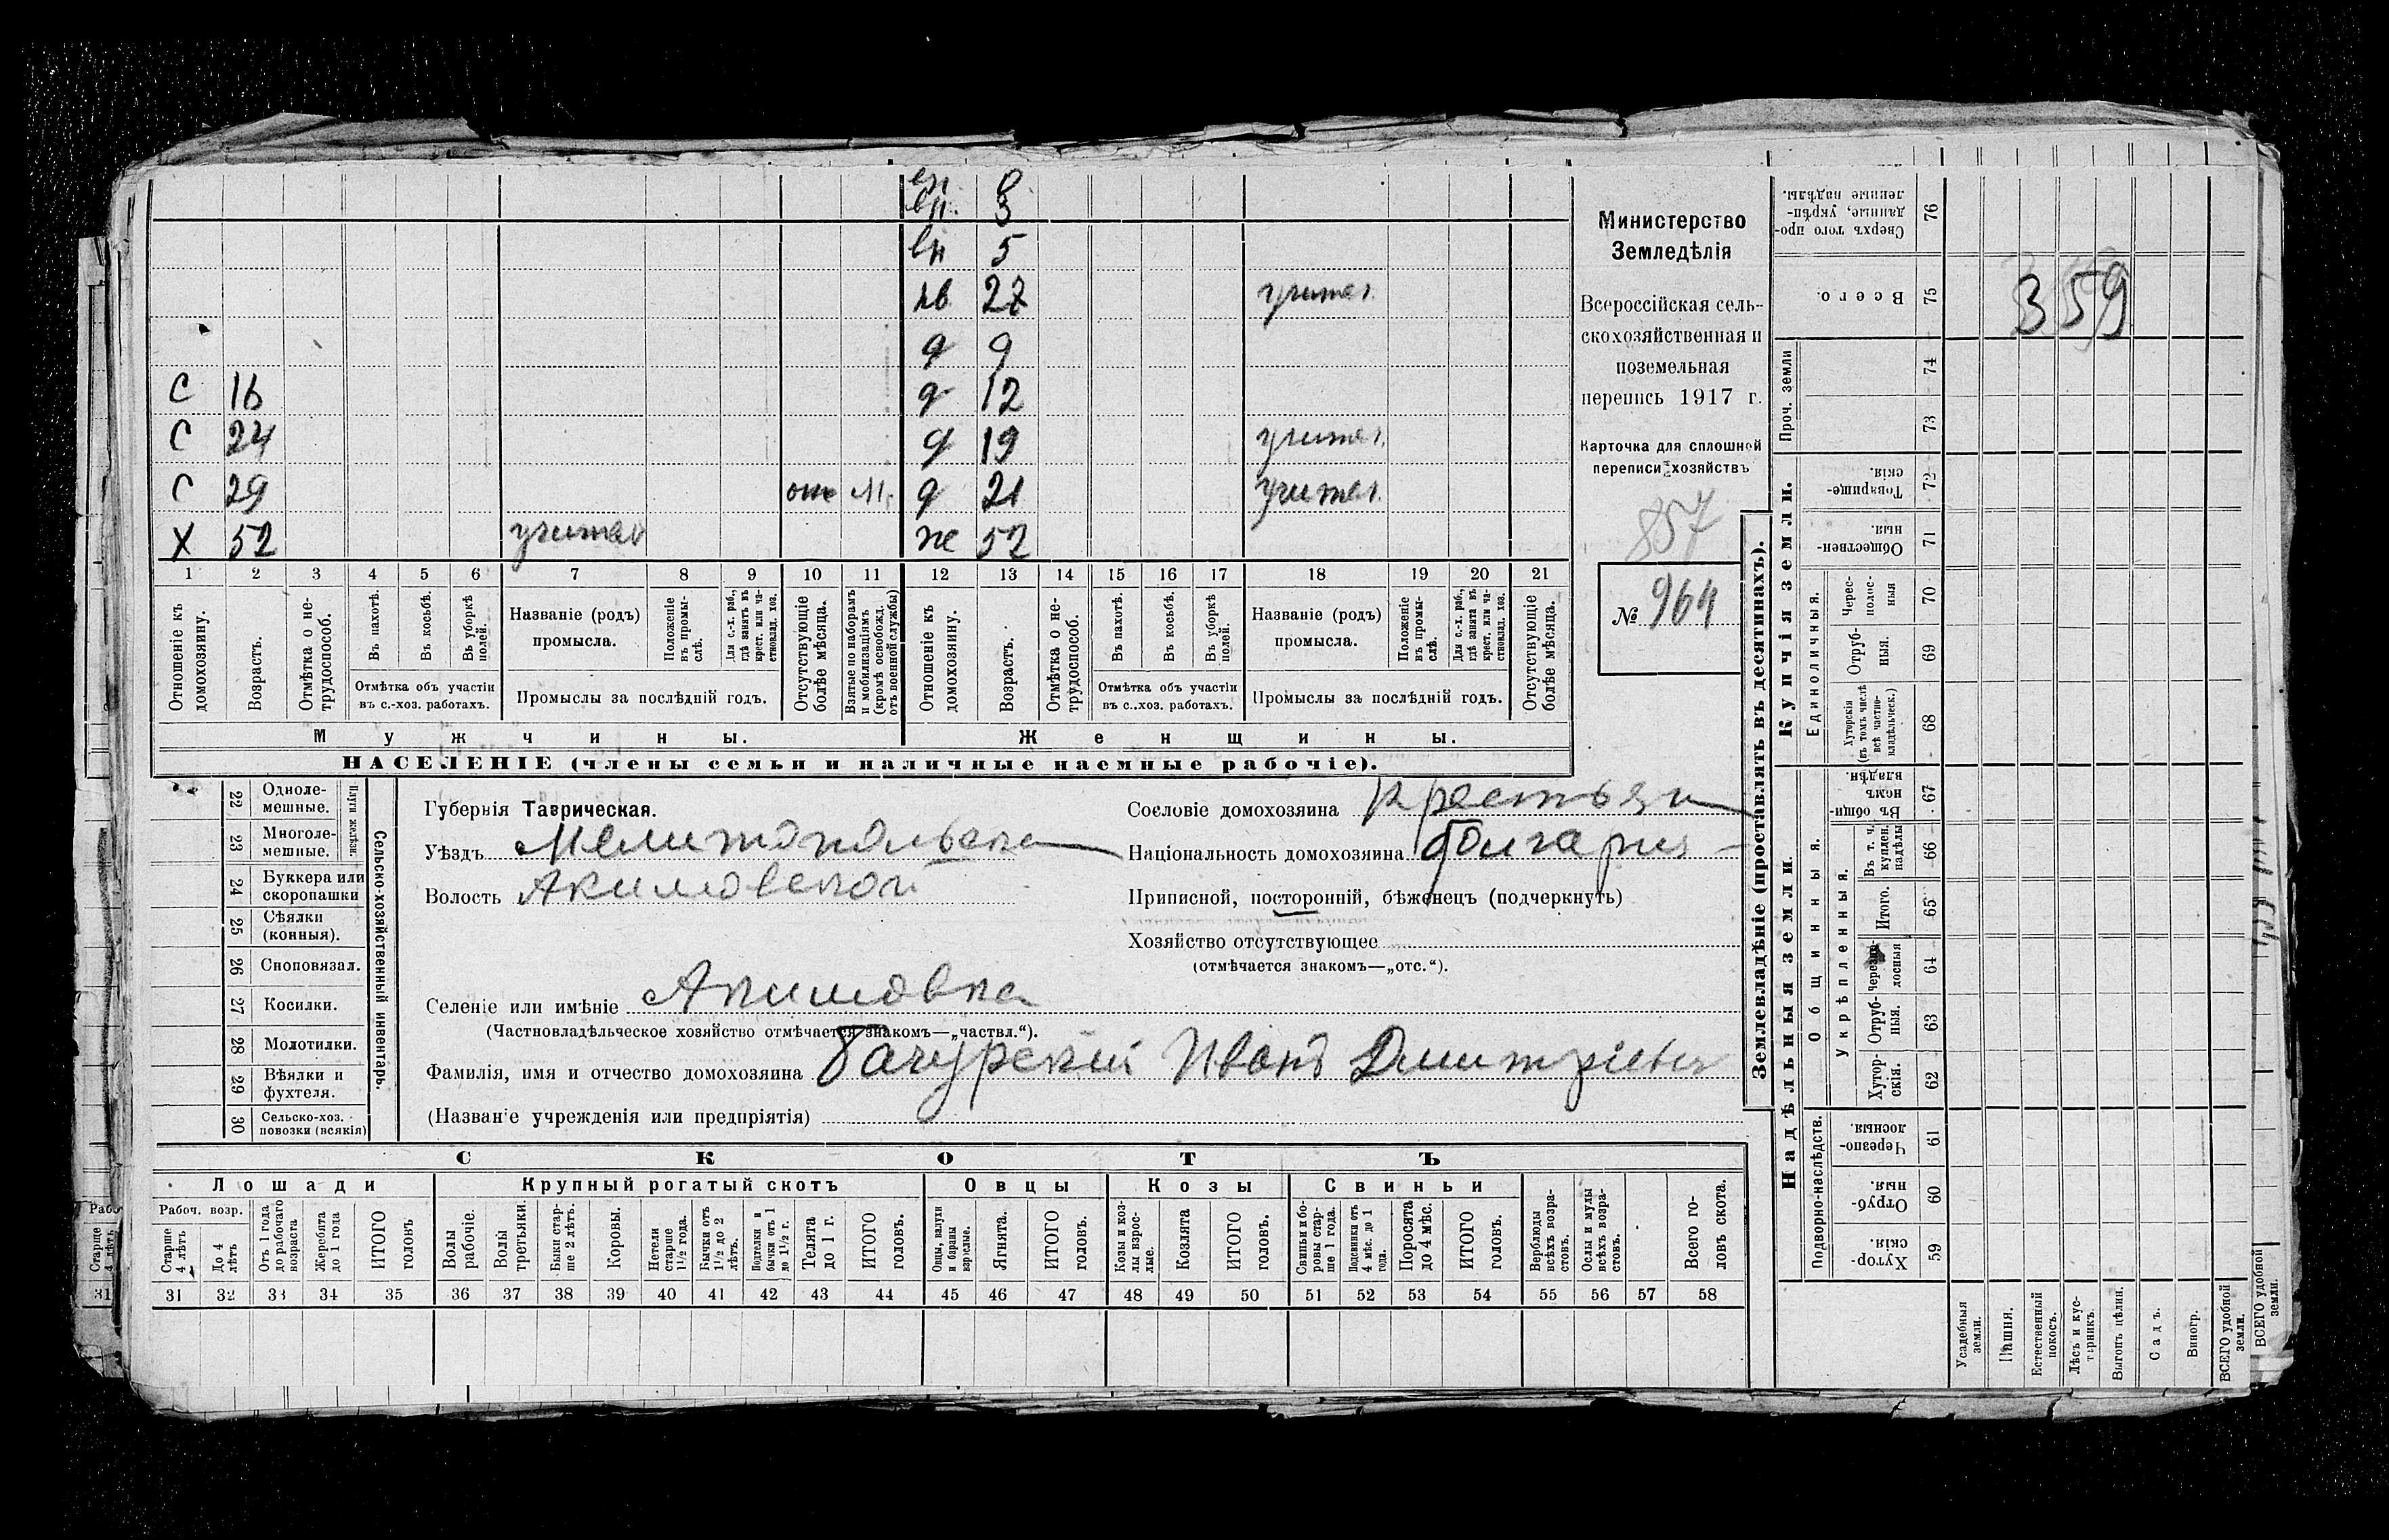 вн. 3
вн 5
нв 27 учител.
д 9
С 16 д 12
С 24 д 19 учител.
С 29 отс М. д 21 учител.
Х 52 учител же 52
1 2 3 4 5 6 7 8 9 10 11 12 13 14 15 16 17 18 19 20 21
Отношеніе къ домохозяину.
Возрастъ.
Отмѣтка о не-
трудоспособ.
Въ пахотѣ.
Въ косьбѣ.
Въ уборкѣ
полей.
Отмѣтка объ участіи
въ с.-хоз. работахъ.
Названіе (родъ)
промысла.
Положеніе
въ промы-
слѣ.
Для с.-х. раб.,
гдѣ занятъ въ
крест. или ча-
стновлад. хоз.
Промыслы за послѣдній годъ.
Отсутствующіе
болѣе мѣсяца.
Взятые по наборамъ
и мобилизаціямъ
(кромѣ освобожд.
отъ военной службы)
Отношеніе къ
домохозяину.
Возрастъ.
Отмѣтка о не-
трудоспособ.
Въ пахотѣ.
Въ косьбѣ.
Въ уборкѣ
полей.
Отмѣтка объ участіи
въ с..хоз. работахъ.
Названіе (родъ)
промысла.
Положеніе
въ промы-
слѣ.
Для с.-х. раб.,
гдѣ занятъ въ
крест. или ча-
стновлад. хоз.
Промыслы за послѣдній годъ.
Отсутствующіе
болѣе мѣсяца.
Мужчины. Женщины.
НАСЕЛЕНІЕ (члены семьи и наличные наемные рабочіе).
Министерство
Земледѣлія
Всероссійская сель-
скохозяйственная и
поземельная
перепись 1917 г.
Карточка для сплошной
переписи хозяйствъ
857
№ 964
22 Одноле-
мешные.
23 Многоле-
мешные.
Плуги желѣзн.
24 Буккера или
скоропашки
25 Сѣялки
(конныя).
26 Сноповязал.
27 Косилки.
28 Молотилки.
29 Вѣялки и
фухтеля.
30 Сельско-хоз.
повозки (всякія)
Сельско-хозяйственный инвентарь.
Губернія Таврическая.
Уѣздъ Мелитопольскаго
Волость Акимовской
Селеніе или имѣніе Акимовка
(Частновладѣльческое хозяйство отмѣчается знакомъ—„частвл.“).
Фамилія, имя и отчество домохозяина Бачурскій Иванъ Дмитріевъ
(Названіе учрежденія или предпріятія)
Сословіе домохозяина крестьян
Національность домохозяина болгарин
Приписной, посторонній, бѣженецъ (подчеркнуть)
Хозяйство отсутствующее
(отмѣчается знакомъ—„отс.“).
СКОТЪ
Лошади Крупный рогатый скотъ Овцы Козы Свиньи
Рабоч. возр.
Старше
4 лѣтъ
До 4
лѣтъ
Отъ 1 года
до рабочаго
возраста
Жеребята
до 1 года
ИТОГО
головъ
Волы
рабочіе.
Волы
третьяки.
Быки стар-
ше 2 лѣтъ.
Коровы.
Нетели
старше
1½ года.
Бычки отъ
1½ до 2
лѣтъ.
Подтелки и
бычки отъ 1
до 1½ г.
Телята
до 1 г.
ИТОГО
головъ.
Овцы, валухи
и бараны
взрослые.
Ягнята.
ИТОГО
головъ.
Козы и коз-
лы взрос-
лые.
Козлята
ИТОГО
головъ.
Свиньи и бо-
ровы стар-
ше 1 года.
Подсвинки отъ
4 мѣс. до 1
года.
Поросята
до 4 мѣс.
ИТОГО
головъ.
Верблюды
всѣхъ возра-
стовъ.
Ослы и мулы
всѣхъ возра-
стовъ.
Всего го-
ловъ скота.
31 32 33 34 35 36 37 38 39 40 41 42 43 44 45 46 47 48 49 50 51 52 53 54 55 56 57 58
Землевладѣніе (проставлять въ десятинахъ).
Купчія земли.
Надѣльныя земли.
Сверхъ того про-
данные, укрѣп-
ленные надѣлы.
76
Всего.
75
359
Проч. земли
74
73
Товарище-
скія.
72
Обществен-
ныя.
71
Единоличныя.
Черес-
полос-
ныя
70
Отруб-
ныя.
69
Хуторскія
(въ томъ числѣ
всѣ частно-
владѣльческ.)
68
Общинныя.
Въ общи
немъ
владѣн.
67
Укрѣпленныя.
Въ т. ч.
куплен.
надѣлы
66
Итого.
65
Черезпо-
лосныя
64
Отруб-
ныя.
63
Хутор-
скія.
62
Подворно-наслѣдств.
Черезпо-
лосныя.
61
Отруб-
ныя.
60
Хутор-
скія.
59
Усадебныя
земли.
Пашня.
Естественный
покосъ.
Лѣсъ и кус-
тарникъ.
Выгонъ цѣлин.
Садъ.
Виногр.
ВСЕГО удобной
земли.
ВСЕГО удобной
земли.
Старше
4 лѣтъ
31